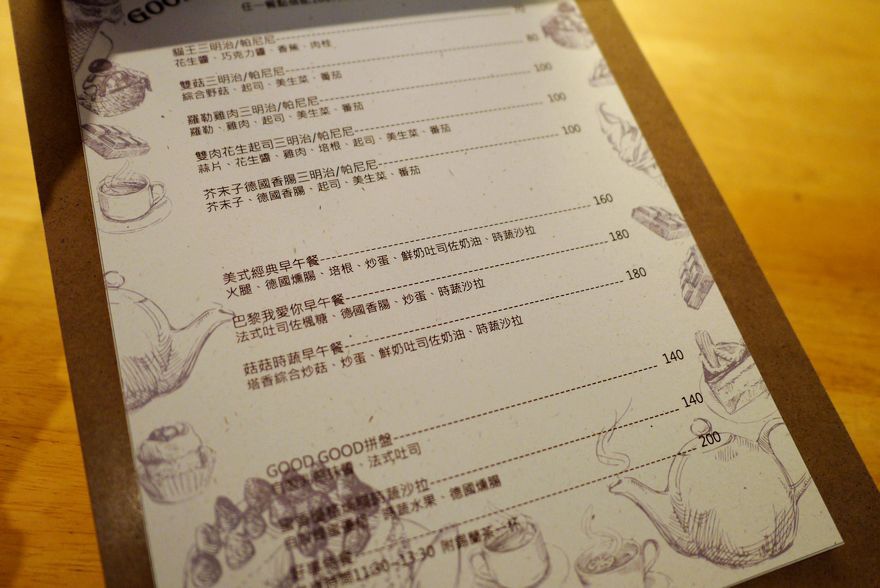 GOOD
任一餐點搭配
貓王三明治/帕尼尼
花生醬、巧克力醬、香蕉、肉桂
雙菇三明治/帕尼尼 80
綜合野菇、起司、美生菜、番茄
羅勒雞肉三明治/帕尼尼 100
羅勒、雞肉、起司、美生菜、番茄
雙肉花生起司三明治/帕尼尼 100
蒜片、花生醬、雞肉、培根、起司、美生菜、番茄
芥末子德國香腸三明治/帕尼尼 100
芥末子、德國香腸、起司、美生菜、番茄
美式經典早午餐 160
火腿、德國燻腸、培根、炒蛋、鮮奶吐司佐奶油、時蔬沙拉
巴黎我愛你早午餐 180
法式吐司佐楓糖、德國香腸、炒蛋、時蔬沙拉
菇菇時蔬早午餐 180
塔香綜合炒菇、炒蛋、鮮奶吐司佐奶油、時蔬沙拉
GOOD GOOD拼盤 140
法式吐司
時蔬沙拉 140
時蔬水果、德國燻腸
200
11:30~13:30 附錫蘭茶一杯